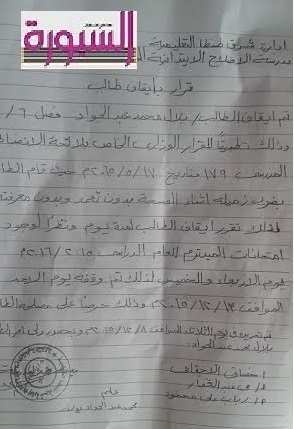 السبورة
ادارة شرق طنطا التعليمية
مدرسة الاصلاح الابتدائية
قرار بإيقاف طالب
تم ايقاف الطالب / بلال محمد عبد الجواد فصل ٦/
وذلك تطبيقا للقرار الوزارى الخاص بلائحة الانضباط
المدرسى ١٧٩ بتاريخ ٢٠١٥/٥/١٧م حيث قام الطالب
بضرب زميله اثناء الفسحة بدون تعمد وبدون معرفته
لذلك تقرر ايقاف الطالب لمدة يوم ونظرا لوجود
امتحانات الميدترم للعام الدراسى ٢٠١٥/٢٠١٦م
يوم الاربعاء والخميس لذلك تم وقفه يوم الاحد
الموافق ٢٠١٥/١٢/١٣م وذلك حرصا على مصلحة الطالب
يوم الثلاثاء الموافق ٢٠١٥/١٢/٨م وبحضور ولى امر
بلال محمد عبد الجواد
اخصائى اجتماعى
محمد عبد الجواد